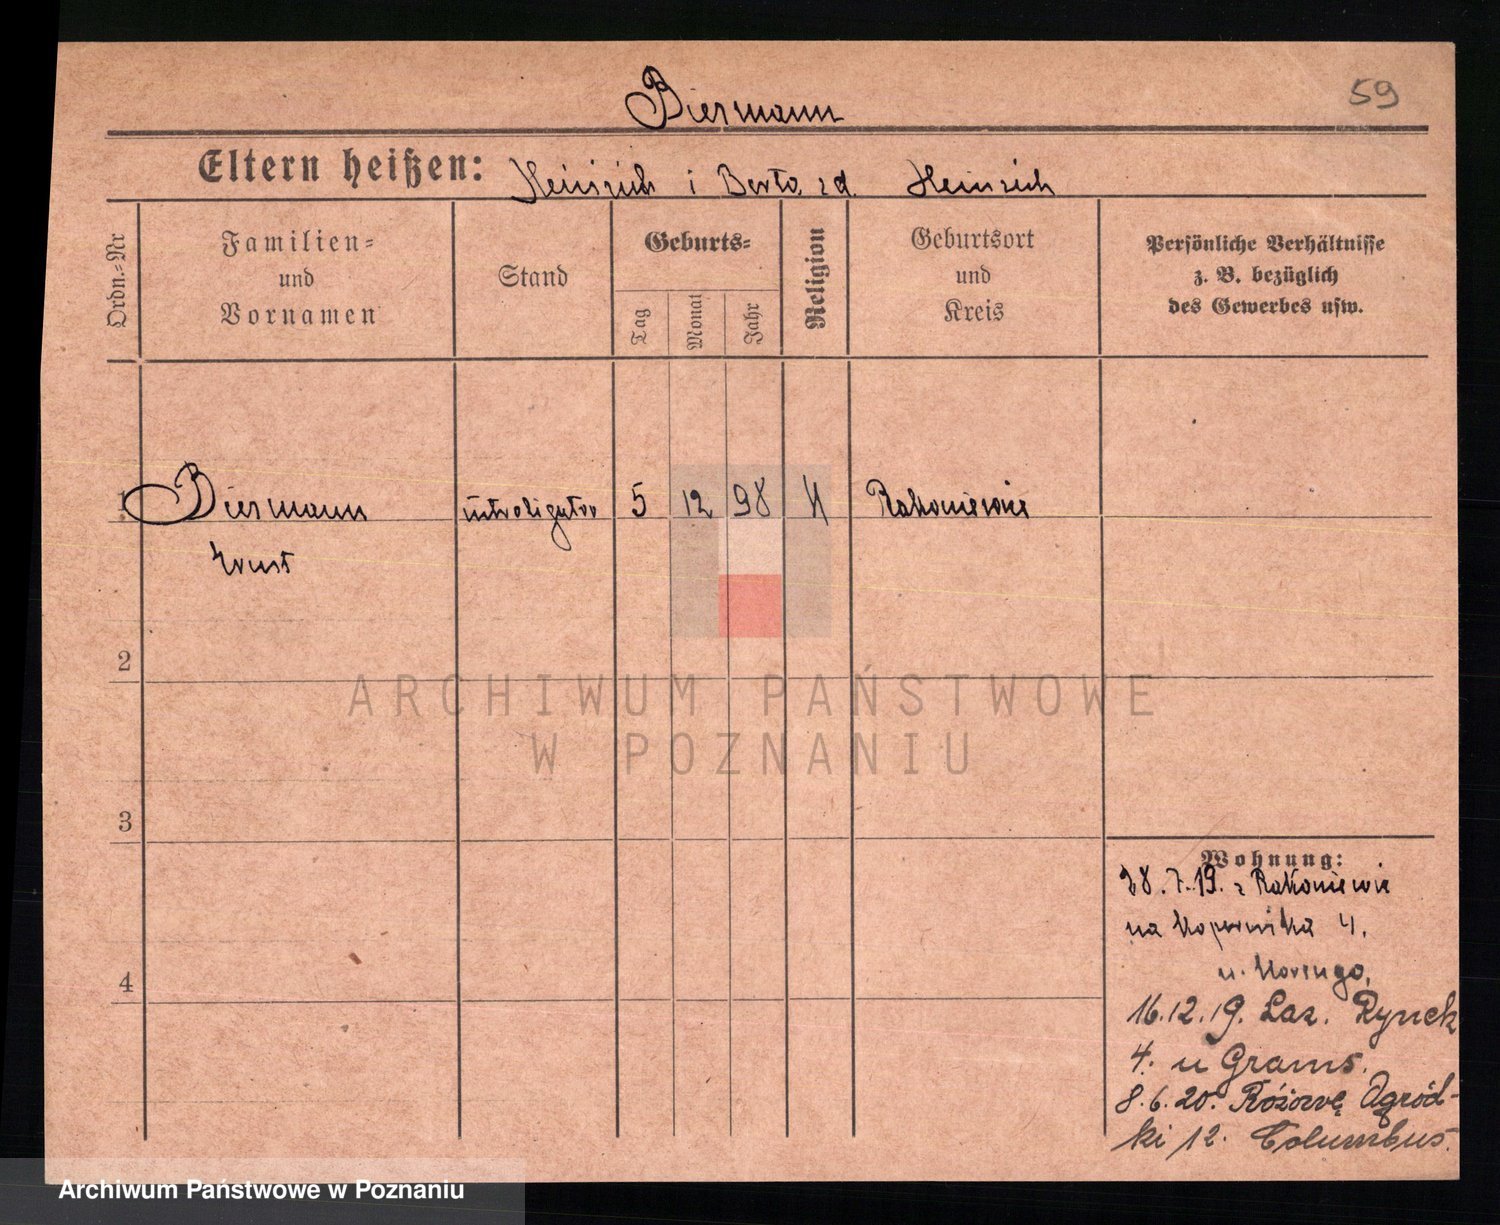 59
Biermann
Eltern heißen: Heinrich i Berta zd. Heinrich
Ordn.-Nr
Familien-
und
Vornamen
Stand
Geburts-
Tag
Monat
Jahr
Religion
Geburtsort
und
Kreis
Persönliche Verhältnisse
z. B. bezüglich
des Gewerbes usw.
1 Biermann introligator 5 12 98 Rakoniewie
Ernst
2
ARCHIWUM PAŃSTWOWE
W POZNANIU
3
Wohnung:
28.7.19. z Rakoniewie
na Kopernika 4.
u.
4
16.12.19. Łaz. Rynek
4. u Grams.
8.6.20. Różowe Ogród-
ki 12. Columbus.
Archiwum Państwowe w Poznaniu